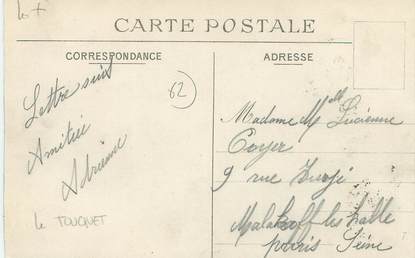 CARTE POSTALE
CORRESPONDANCE
ADRESSE
Lettre suit
Amitié
Adrienne
62
le TOUQUET
Madame Melle Lucienne
Coyer
9 rue
Malakoff les halle
paris Seine